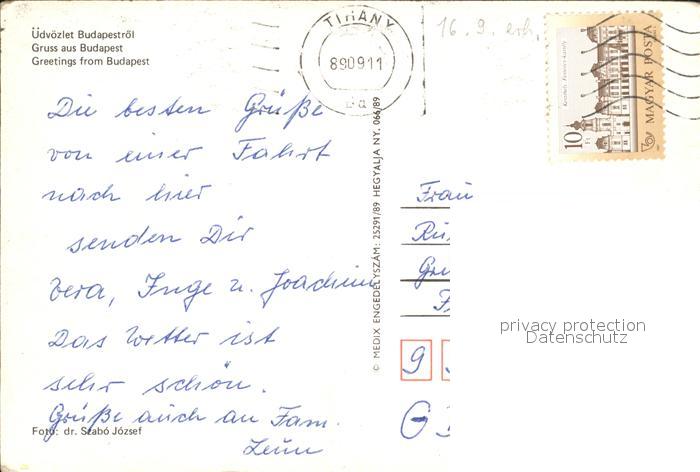 Üdvözlet Budapestről
Gruss aus Budapest
Greetings from Budapest
TIHANY
890911
16. 9. erh.
10 Ft
MAGYAR POSTA
Die besten Grüße
von einer Fahrt
nach hier
senden Dir
Vera, Inge u. Joachim
Das Wetter ist
sehr schön.
Grüße auch an Fam.
Foto: dr. Szabó József
© MEDIX ENGEDÉLYSZÁM: 25291/89 HEGYALJA NY. 066/89
Frau
9
privacy protection
Datenschutz